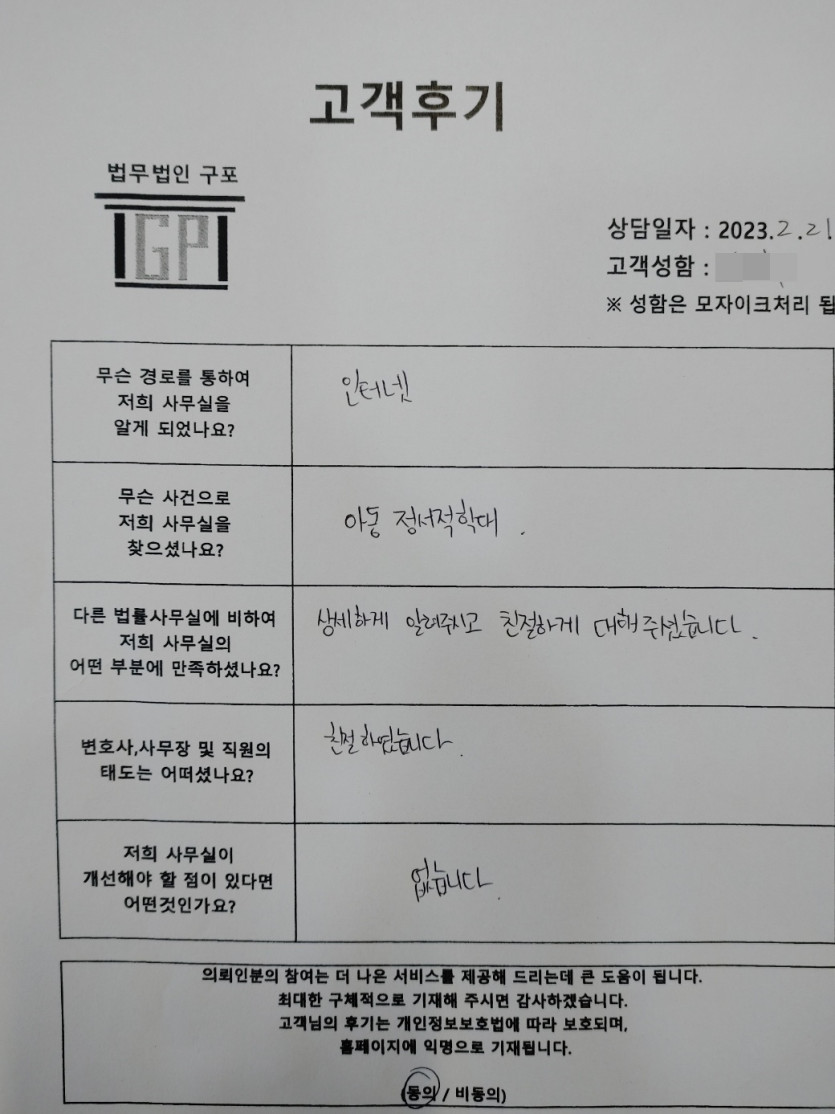 고객후기
법무법인 구포
GP
상담일자 : 2023.2.21.
고객성함 :
※ 성함은 모자이크처리 됩
무슨 경로를 통하여
저희 사무실을
알게 되었나요?
인터넷
무슨 사건으로
저희 사무실을
찾으셨나요?
아동 정서적학대 .
다른 법률사무실에 비하여
저희 사무실의
어떤 부분에 만족하셨나요?
상세하게 알려주시고 친절하게 대해주셨습니다.
변호사,사무장 및 직원의
태도는 어떠셨나요?
친절하였습니다.
저희 사무실이
개선해야 할 점이 있다면
어떤것인가요?
없습니다.
의뢰인분의 참여는 더 나은 서비스를 제공해 드리는데 큰 도움이 됩니다.
최대한 구체적으로 기재해 주시면 감사하겠습니다.
고객님의 후기는 개인정보보호법에 따라 보호되며,
홈페이지에 익명으로 기재됩니다.
(동의 / 비동의)